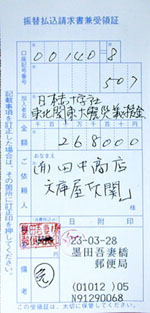 振替払込請求書兼受領証
口座記号番号
00140 8
507
加入者名
日本赤十字社
東北関東大震災義援金
金額
268000
ご依頼人
おなまえ
(有)田中商店
大阵屋
日附印
23-03-28
墨田吾妻橋
郵便局
(01012) 05
N91290068
記載事項を訂正した場合は、その箇所に訂正印を押してください。
この受領証は、大切に保管してください。